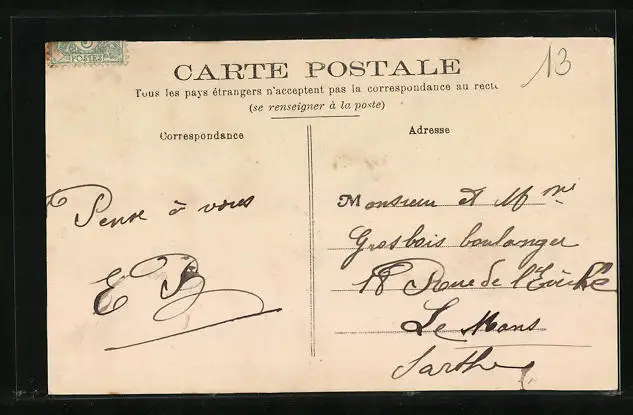 5
POSTES
13
CARTE POSTALE
Tous les pays étrangers n'acceptent pas la correspondance au recto
(se renseigner à la poste)
Correspondance
Adresse
Pense à vous
E B
Monsieur et Mme
Grosbois boulanger
18 Rue de l'Evêché
Le Mans
Sarthe